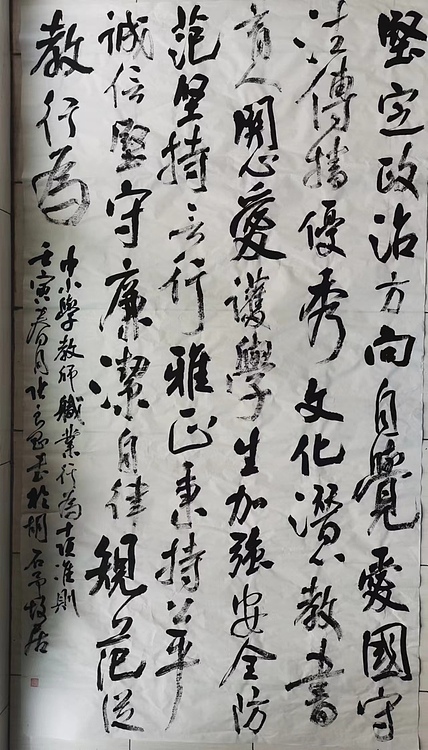 堅定政治方向自覺愛國守
法傳播優秀文化潛心教書
育人關心愛護學生加強安全防
范堅持言行雅正秉持公平
誠信堅守廉潔自律規范從
教行為
中小學教師職業行為十項准則
壬寅春月張書於胡石予故居